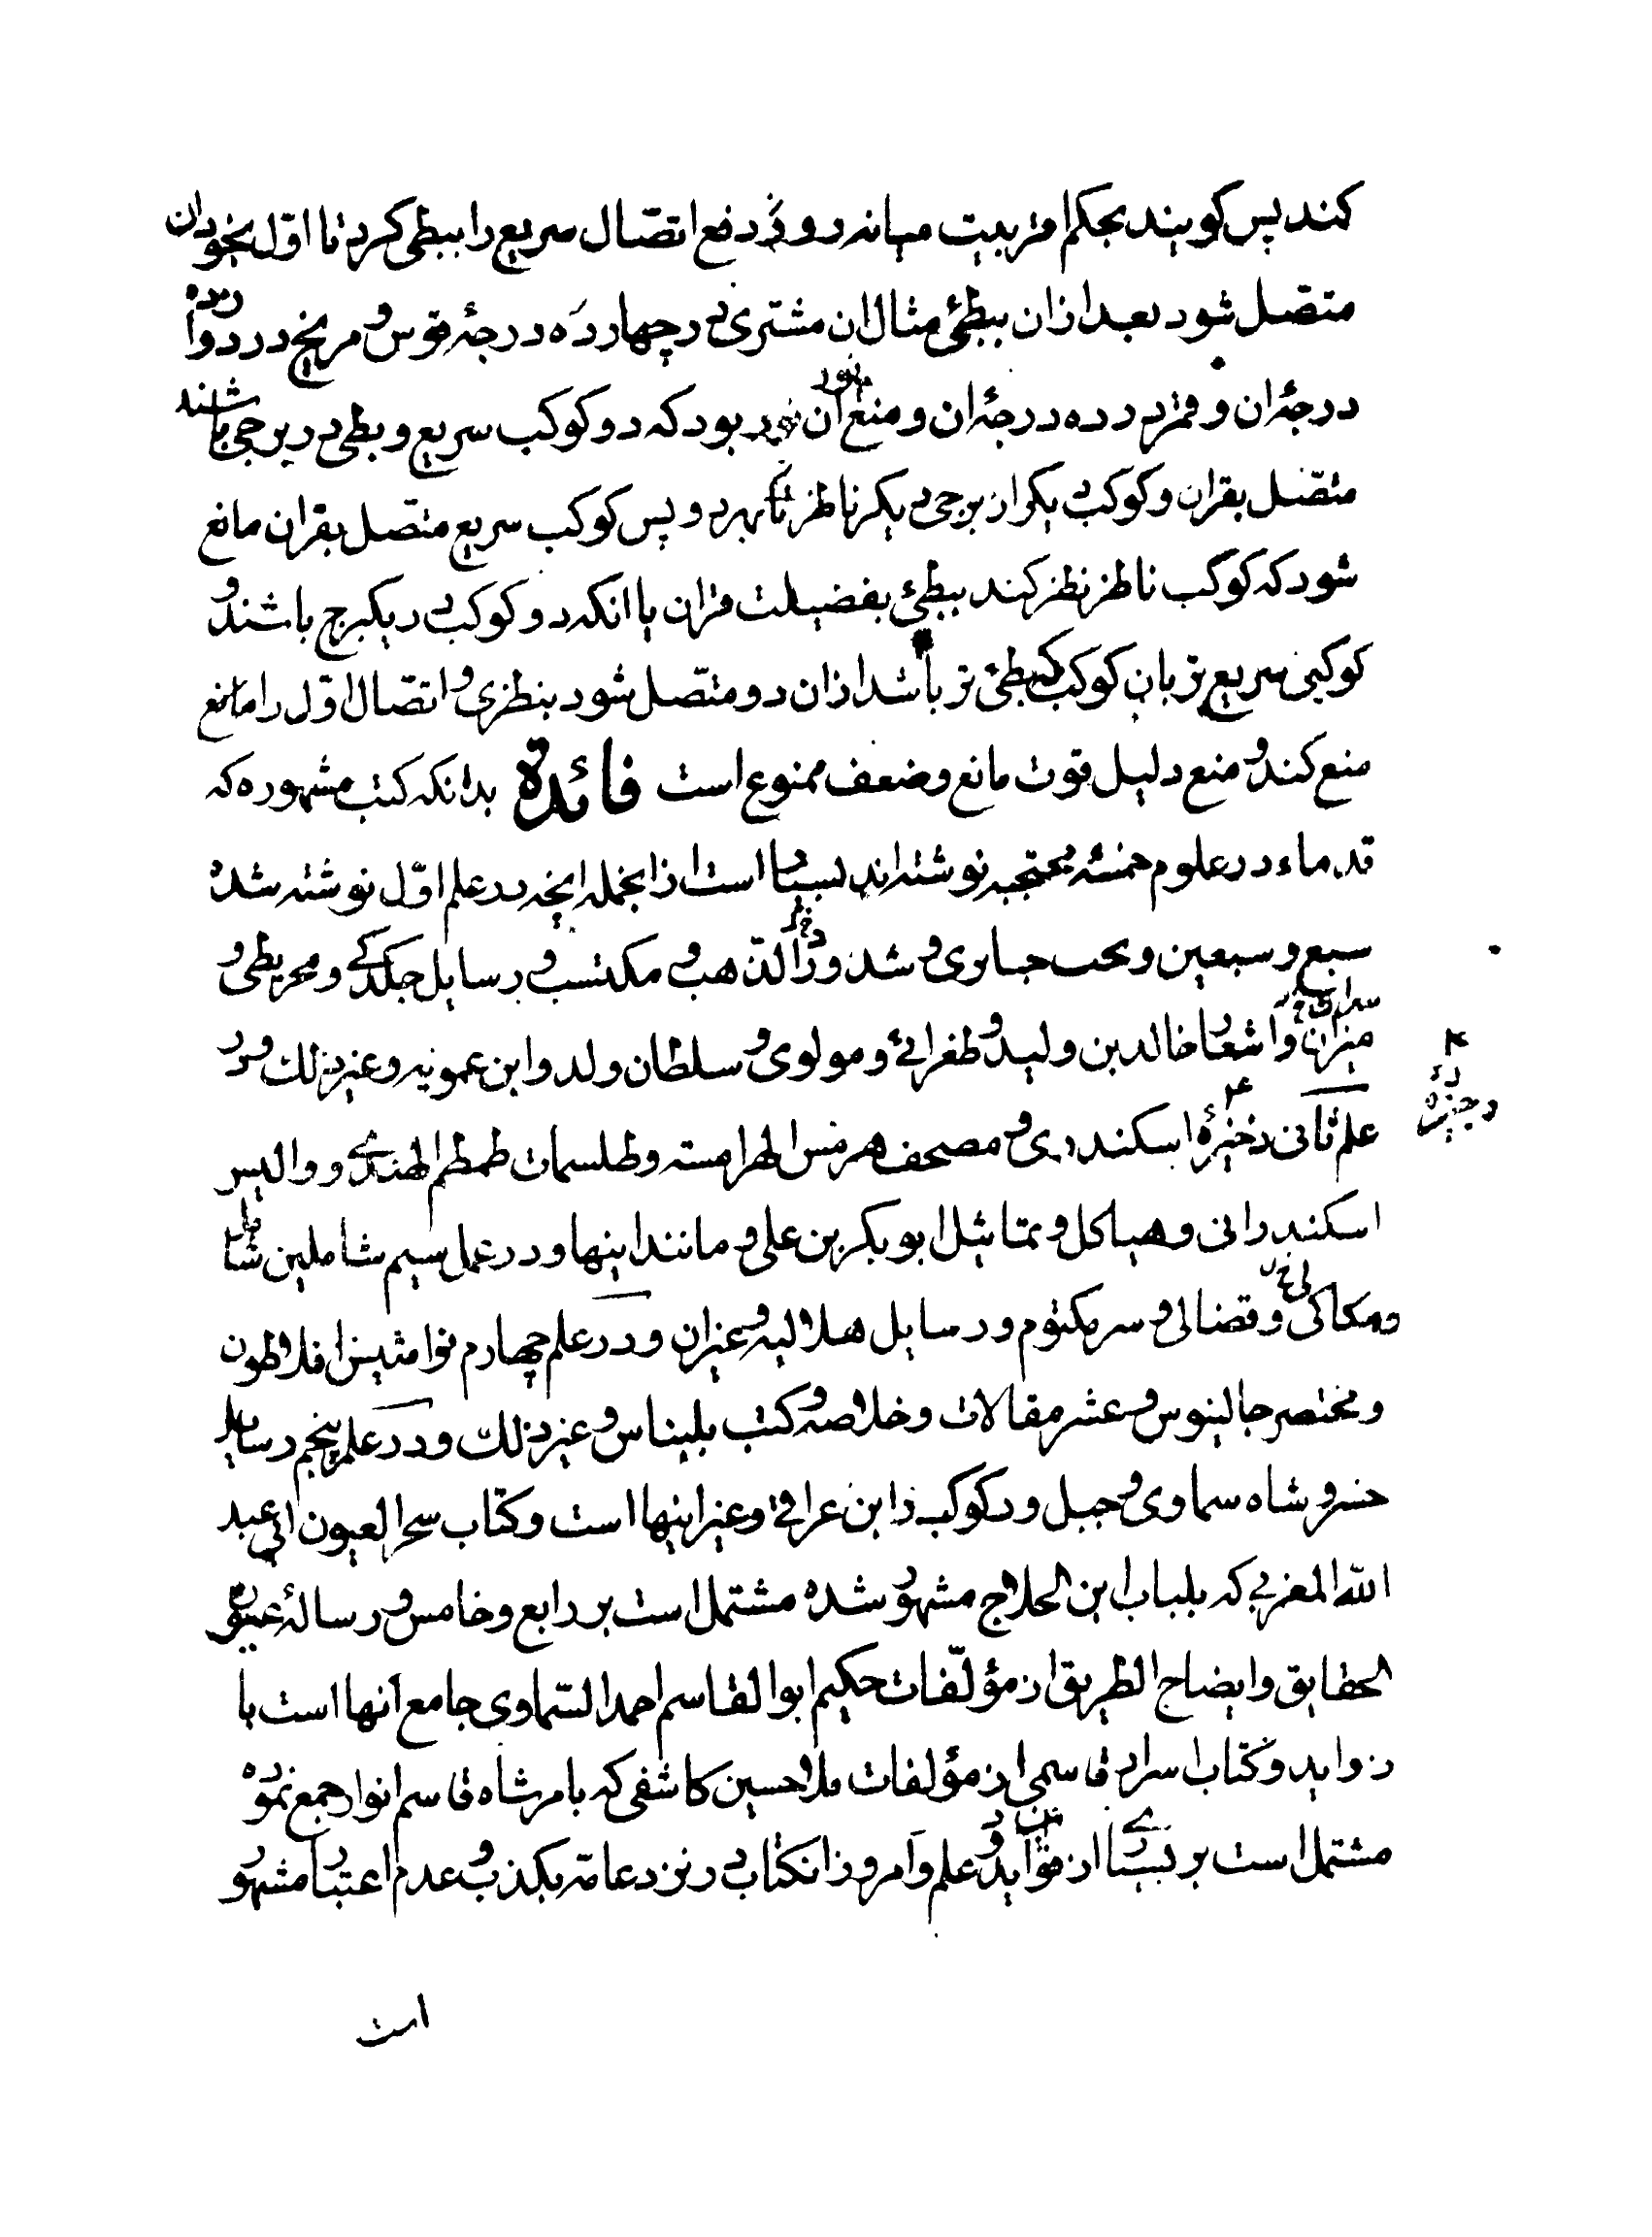 کند پس کویند بحکم اقربیت میانه رو دفع اتصّال سریع را ببطی کرد تا اوّل بخود ان
متصّل شود بعد ازان ببطئ مثال ان مشتری در چهارده درجهٔ قوس و مریخ در دوازده
درجهٔ ان و قمر در ده درجهٔ ان و منع آن بود که دو کوکب سریع و بطی در برجی باشند
متصّل بقران و کوکب دیکر از برجی دیکر ناظر بهر دو پس کوکب سریع متصل بقران مانع
شود که کوکب ناظر نظر کند ببطئ بفضیلت قران یا انکه دو کوکب در یکبرج باشند و
کوکبی سریع تر بان کوکب که بطئ تر باشد ازان دو متصّل شود بنظری و اتصّال اوّل را مانع
منع کند و منع دلیل قوت مانع و ضعف ممنوع است فائدة بدانکه کتب مشهوره که
قدماء در علوم خمسهٔ محتجبه نوشته‌اند بسیار است ازانجمله انچه در علم اوّل نوشته شده
سبع و سبعین و نخب جباری و شذور الذّهب و مکتسب و رسایل جلدکی و مجریطی و
میزان و اشعار خالد بن ولید و طغرائی و مولوی و سلطان ولد و ابن عمونیه و غیر ذلک و در
علم ثانی ذخیرهٔ اسکندری و مصحف هرمس الهرامسه و طلسمات طمطم الهندی و والیس
اسکندرانی و هیاکل و تماثیل ابوبکر بن علی و مانند اینها و در عمل سیم شاملین شامل
و مکاکی و قضالی و سر مکتوم و رسایل هلالیه و غیران و در علم چهارم نوامیس افلاطون
و مختصر جالینوس و عشر مقالات و خلاصه و کتب بلیناس و غیر ذلک و در علم پنجم رسایل
خسرو شاه سماوی و جبل و دکوکب ذابن عراقی و غیر اینها است و کتاب سحر العیون ابی عبد
الله المغربی که بلباب ابن الحلاج مشهور شده مشتمل است بر رابع و خامس و رسالهٔ عیون
الحقایق و ایضاح الطریق از مؤلّفات حکیم ابوالقاسم احمد السّماوی جامع آنها است با
زواید و کتاب اسرار قاسمی از مؤلفات ملا حسین کاشفی که بامر شاه قاسم انوار جمع نموده
مشتمل است بر بسیاری از فواید و علم و امروز انکتاب در نزد عامّه بکذب و عدم اعتبار مشهور
است